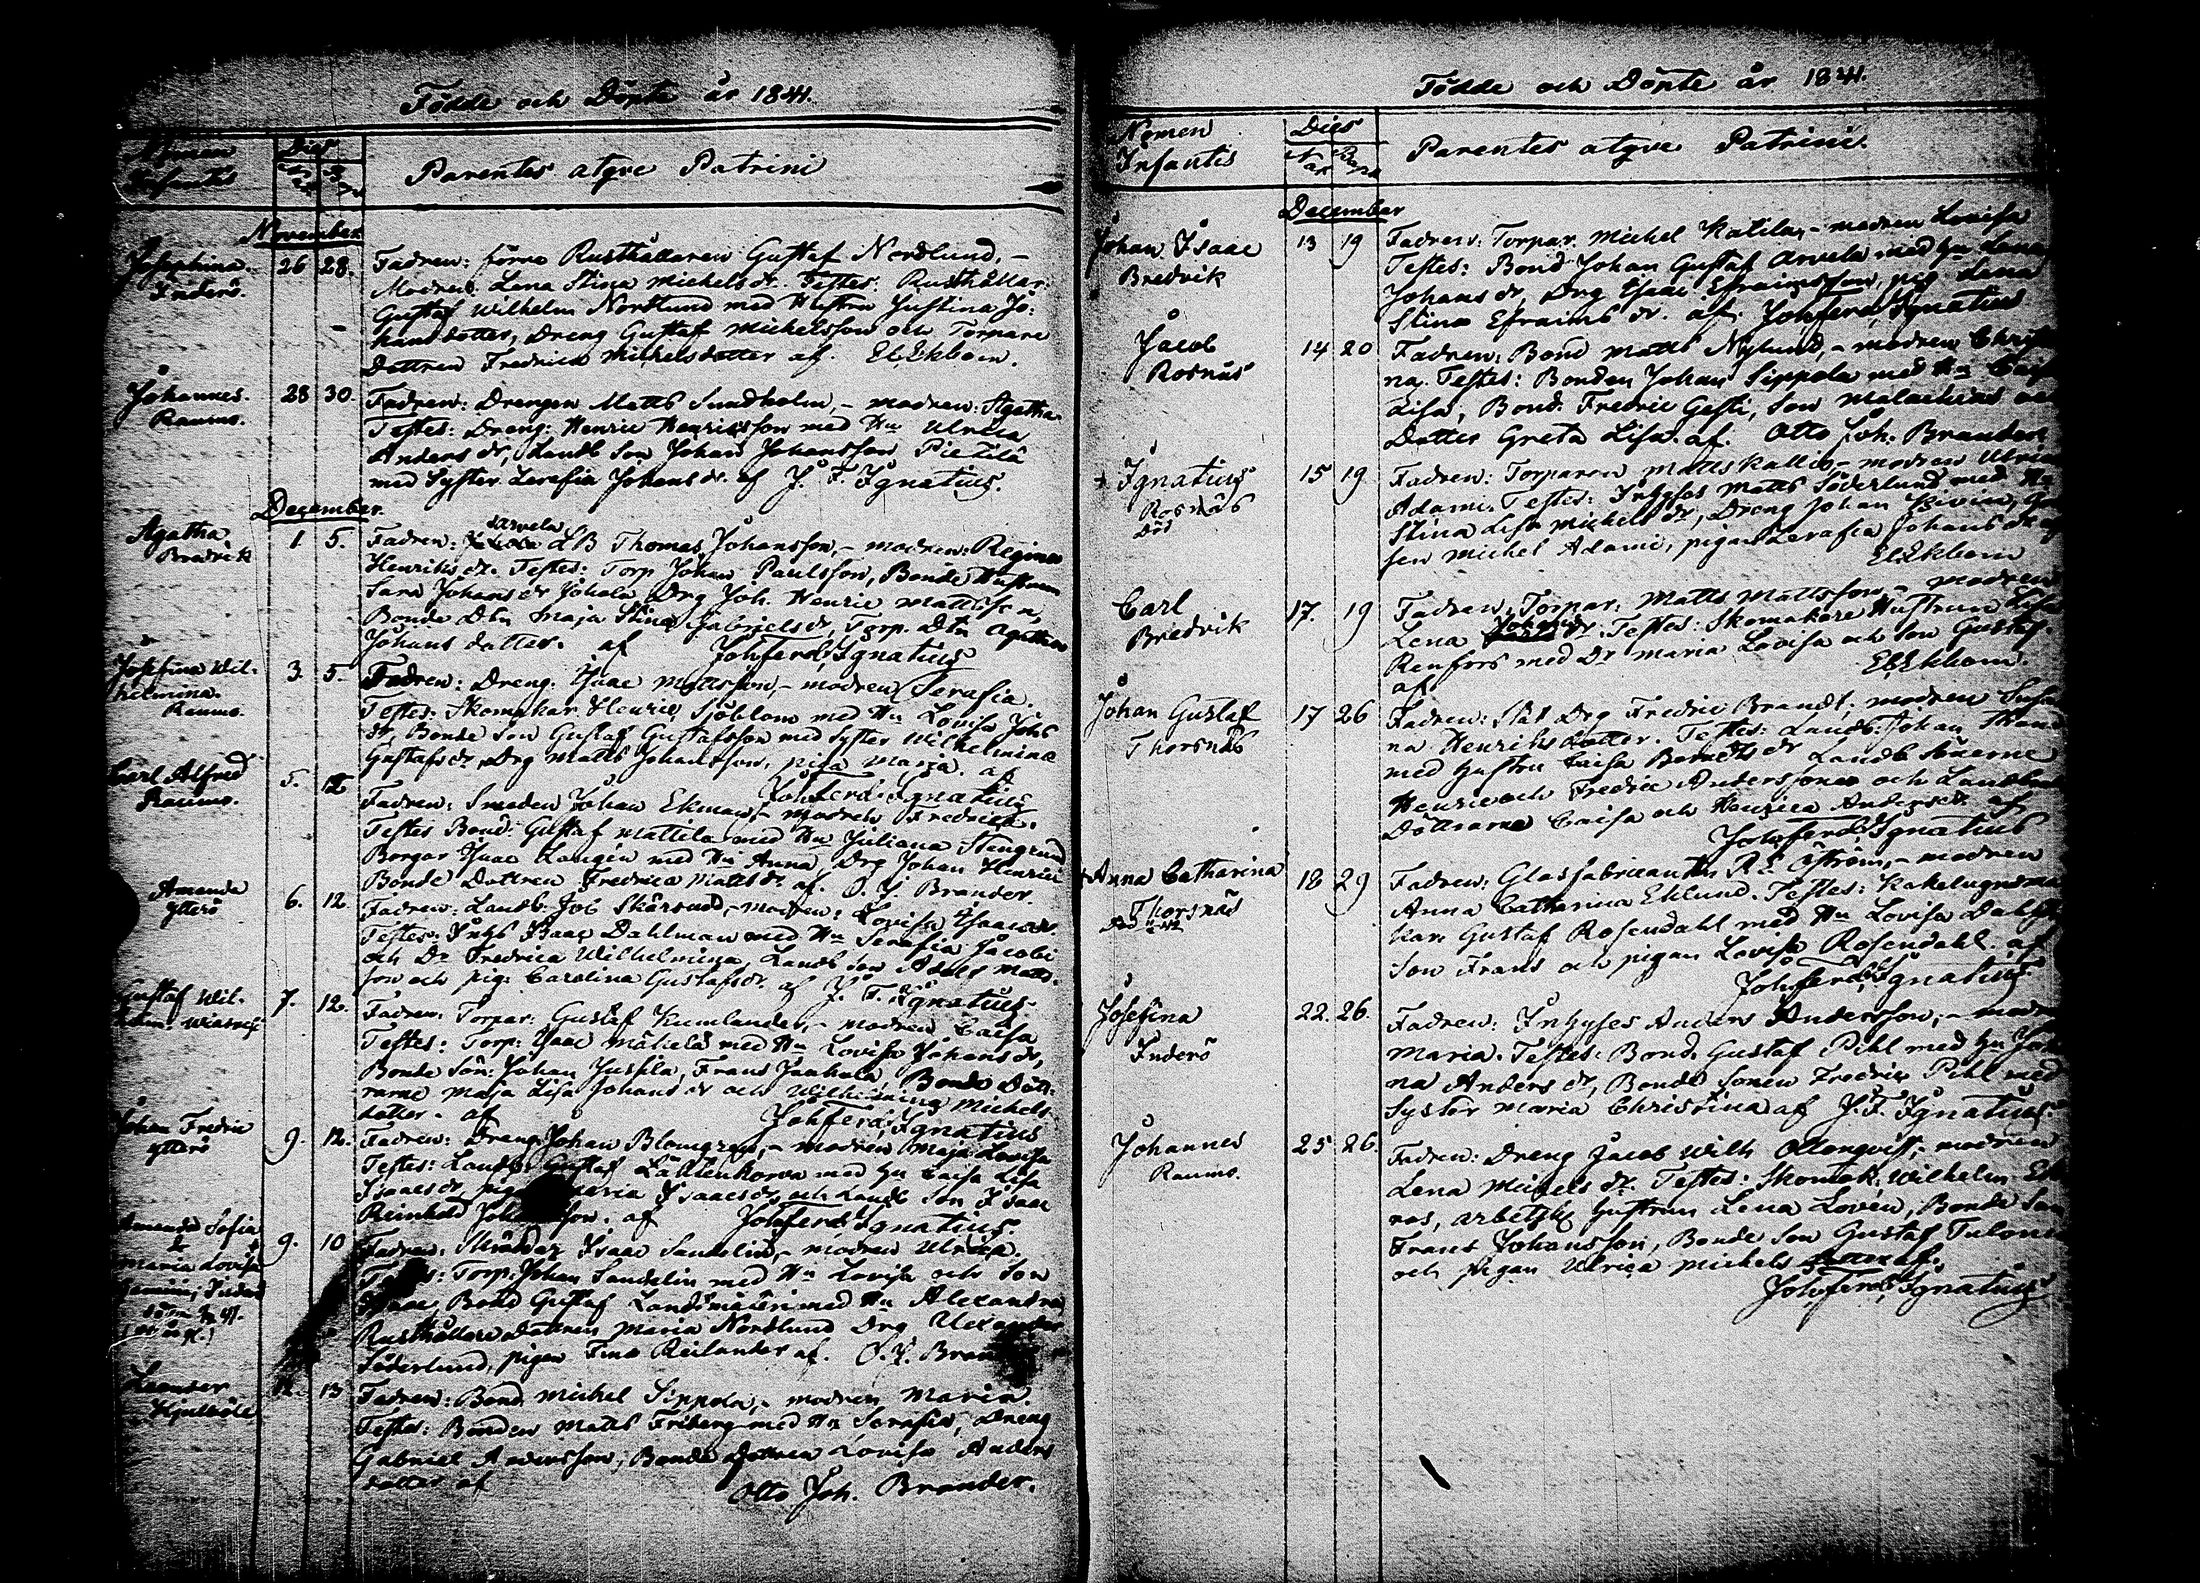 Födde och Döpte år 1841.
Nomen
Infantis
Dies
Parentes atqve Patrini
November
Josephina
Inderö.
26 28. Fadren: förre Rusthållaren Gustaf Nordlund, –
Modren: Lena Stina Michels dr. Testes: Rusthållar:
Gustaf Wilhelm Nordlund med Hustru Justina Jo:
hansdotter, Dreng Gustaf Michelsson och Torpare
Dottren Fredrica Michelsdotter af. El. Ekbom.
Johannes.
Raumo.
28 30. Fadren: Drengen Matts Sundholm, – modren: Agatha
Testes: Dreng: Henric Henricsson med Hu Ulrica
Anders dr, Landb Son Johan Johansson Pietilä
med Syster Serafia Johans dr. af J. F. Ignatius.
December
Agatha
Bredvik
1. 5. Fadren: Arvela LB Thomas Johansson, – modren: Regina
Henriks dr. Testes: Torp Johan Paulsson, Bonde Hustrun
Sara Johans dr Johola Drg Joh. Henric Mattsson,
Bonde Dtn Maja Stina Gabriels dr, Torp. Dtn Agatha
Johans dotter. af Joh ferd. Ignatius
Josefina Wil-
helmina.
Raumo.
3. 5. Fadren: Dreng. Isaac Mattsson, – modren Serafia.
Testes: Skomakar Henric Sjöblom med Hu Lovisa Johs
dr, Bonde Son Gustaf Gustafsson med Syster Wilhelmina
Gustafs dr, Drg Matts Johansson, piga Maria. af
Joh ferd. Ignatius
Carl Alfred
Raumo.
5. 12 Fadren: Smeden Johan Ekman, – modren Fredrica.
Testes Bond. Gustaf Mattila med Hu Juliana Stengrund
Borgar Isaac Langén med Hu Anna, Drg Johan Henric
Bonde Dottren Fredrica Matts dr. af. O. J. Brander.
Amanda
Ytterö
6. 12. Fadren: Landb: Job Skärsudd, – modren: Lovisa Isaacs dr.
Testes: Inhs Isaac Dahlman med Hu Serafia Jacobs
och Dr Fredrica Wilhelmina, Landb Son Adolf Matts-
son och pig: Carolina Gustafs dr. af J. F. Ignatius.
Gustaf Wil-
7. 12. Fadren: Torpar: Gustaf Kumlander, – modren Caisa
Testes: Torp: Isaac Mäkelä med Hu Lovisa Johans dr,
Bonde Son: Johan Jussila, Frans Jaakola Bonde Dött-
rarne Maja Lisa Johans dr och Wilhelmina Michels
dotter. af Joh ferd. Ignatius
Johan Fredric
Ytterö
9. 12. Fadren: Dreng Johan Blomgren, – modren Maja Lovisa
Testes: Landb. Gustaf Lättenkorva med Hu Caisa Lisa
Isaacs dr, pig Maria Isaacs dr, och Landb Son Isaac
Reinhold af Joh ferd. Ignatius.
Amanda Sofia
&
Maria Lovisa
9. 10 Fadren: Skräddar Isaac Sandelin, – modren Ulrica.
Testes: Torp: Johan Sandelin med Hu Lovisa och Son
Isaac, Bond Gustaf Landsmäteri med Hu Alexandra
Rusthållare Dottren Maria Nordlund Drg Alexander
Söderlund, pigan Fina Reilander af. O. J.
Leander
Hjulböle
12. 13 Fadren: Bond Michel Sippola, – modren Maria.
Testes: Bonden Matts Friberg med Hu Serafia, Dreng
Gabriel Andersson, Bonde Dottren Lovisa Anders
dotter af Otto Joh. Brander.
Födde och Döpte år 1841.
Nomen
Infantis
Dies
Parentes atqve Patrini.
December
Johan Isaac
Bredvik
13 19 Fadren: Torpar. Michel Katila, – modren Lovisa
Testes: Bond Johan Gustaf Arvela med Hu Lena
Johans dr, Drg Isaac Efraimsson, pig Lena
Stina Efraims dr. af. Joh ferd. Ignatius
Jacob
Rosnäs
14 20 Fadren: Bond Matts Nylund, – modren Christi
na. Testes: Bonden Johan Sippola med Hu Caisa
Lisa, Bond. Fredric Gesti, Son Malachias och
Dotter Greta Lisa. af. Otto Joh. Brander
+ Ignatius
Rosnäs
Död
15 19 Fadren: Torparen Matts Kallio, – modren Ulrica
Adami. Testes: Inhyses Matts Söderlund med Hu
Stina Lisa Michels dr, Dreng Johan Kivin,
sen Michel Adami, pigan Serafia Johans dr af
El. Ekbom
Carl
Bredvik
17. 19 Fadren: Torpar: Matts Mattsson, – modren
Lena Johans dr. Testes: Skomakare Hustrun Lisa
Renfors med Dr Maria Lovisa och Son Gustaf.
af El. Ekbom.
Johan Gustaf
Thorsnäs
17 26 Fadren: Stat Drg Fredric Brandt; modren Susan
na Henriks dotter. Testes: Landb: Johan
med Hustru Caisa Bernts dr Landb Sönerne
Henric och Fredric Anderssöner och Landbonde
Döttrarne Caisa och Henrica Anders dr. af
Joh ferd. Ignatius
+ Anna Catharina
Thorsnäs
18 29 Fadren: Glasfabricanten R. E. Öström, – modren
Anna Catharina Eklund. Testes: Kakelugnsma
kare Gustaf Rosendahl med Hu Lovisa
Son Frans och pigan Lovisa Rosendahl. af
Joh ferd. Ignatius
Josefina
Inderö
22. 26. Fadren: Inhyses Anders Andersson, – modren
Maria. Testes: Bond. Gustaf Pihl med Hu
na Anders dr, Bonde Sonen Fredric Pihl med
Syster Maria Christina af J. F. Ignatius.
Johannes
Raumo.
25 26. Fadren: Dreng Jacob Wilh Ollonqvist, – modren
Lena Michels dr. Testes: Skomak. Wilhelm
ros, arbetsk: Hustrun Lena Lovén, Bonde Son
Frans Johansson, Bonde Son Gustaf Tulonen
och pigan Ulrica Michels dotter af.
Joh ferd. Ignatius